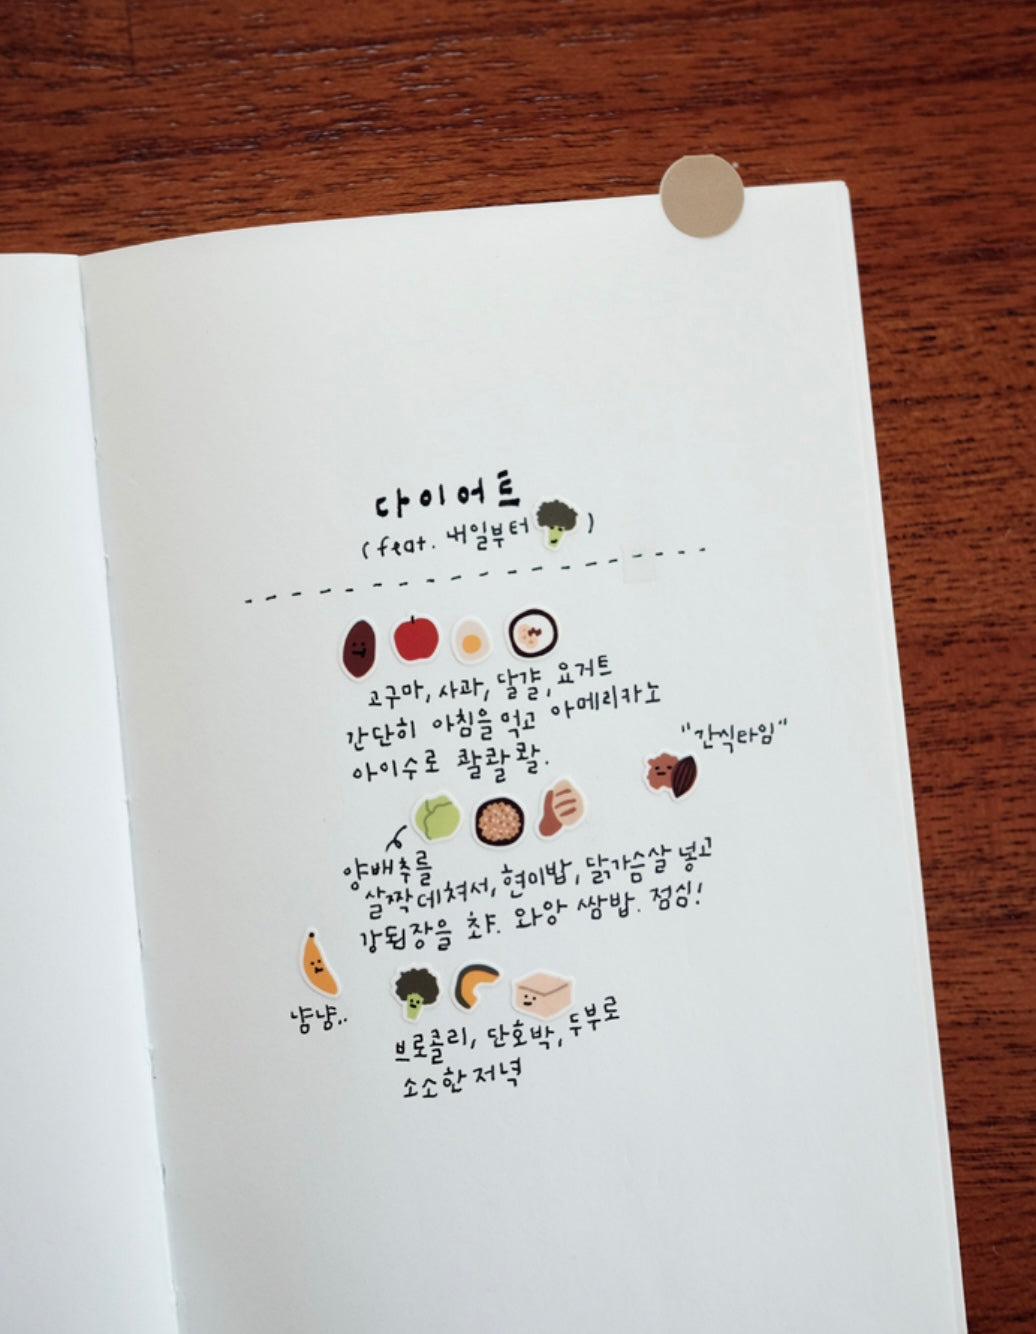 다이어트
(feat. 내일부터)
고구마, 사과, 달걀, 요거트
간단히 아침을 먹고 아메리카노
아이수로 콸콸콸.
"간식타임"
양배추를
살짝 데쳐서, 현미밥, 닭가슴살 넣고
강된장을 촤. 와앙 쌈밥. 점심!
냠냠..
브로콜리, 단호박, 두부로
소소한 저녁